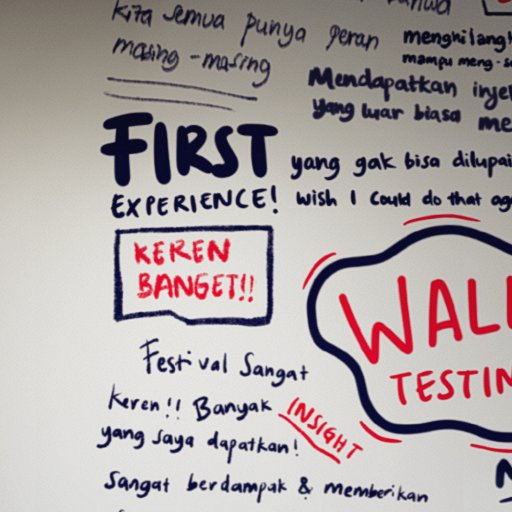 kita semua punya peran
masing-masing
menghilang
mampu meng-
Mendapatkan
yang luar biasa
FIRST
EXPERIENCE!
yang gak bisa dilupa
wish I could do that ag
KEREN
BANGET!!
WAL
TESTIN
Festival Sangat
keren!! Banyak INSIGHT
yang saya dapatkan!
Sangat berdampak & memberikan